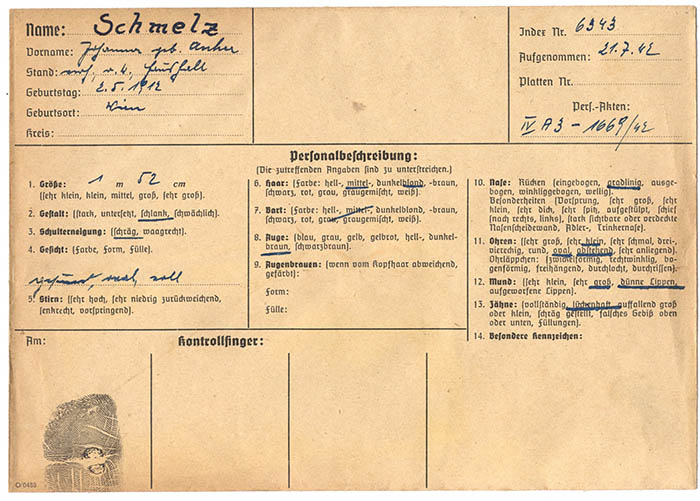 Name: Schmelz
Vorname: Johanna geb.
Stand:
Geburtstag: 2.5.1912
Geburtsort: Wien
Kreis:
Index Nr. 6343
Aufgenommen: 21.7.42
Platten Nr.
Pers.-Akten:
IV A 3 - 1669/42
Personalbeschreibung:
(Die zutreffenden Angaben sind zu unterstreichen.)
1. Größe: 1 m 52 cm
(sehr klein, klein, mittel, groß, sehr groß).
2. Gestalt: (stark, untersetzt, schlank, schwächlich).
3. Schulterneigung: (schräg, waagrecht).
4. Gesicht: (Farbe, Form, Fülle).
gesund, oval, voll
5. Stirn: (sehr hoch, sehr niedrig zurückweichend,
senkrecht, vorspringend).
6. Haar: (Farbe: hell-, mittel-, dunkelblond, -braun,
schwarz, rot, grau, graugemischt, weiß).
7. Bart: (Farbe: hell-, mittel-, dunkelblond, -braun,
schwarz, rot, grau, graugemischt, weiß).
8. Auge: (blau, grau, gelb, gelbrot, hell-, dunkel-
braun, schwarzbraun).
9. Augenbrauen: (wenn vom Kopfhaar abweichend,
gefärbt):
Form:
Fülle:
10. Nase: Rücken (eingebogen, gradlinig, ausge-
bogen, winkliggebogen, wellig).
Besonderheiten (Vorsprung, sehr groß, sehr
klein, sehr dick, sehr spitz, aufgestülpt, schief
nach rechts, links, stark sichtbare oder verdeckte
Nasenscheidewand, Adler-, Trinkernase).
11. Ohren: (sehr groß, sehr klein, sehr schmal, drei-
viereckig, rund, oval, abstehend, sehr anliegend).
Ohrläppchen: (zwickelförmig, rechtwinklig, bo-
genförmig, freihängend, durchlocht, durchrissen).
12. Mund: (sehr klein, sehr groß, dünne Lippen,
aufgeworfene Lippen).
13. Zähne: (vollständig, lückenhaft, auffallend groß
oder klein, schräg gestellt, falsches Gebiß oben
oder unten, Füllungen).
14. Besondere Kennzeichen:
Am:
Kontrollfinger:
O/0483